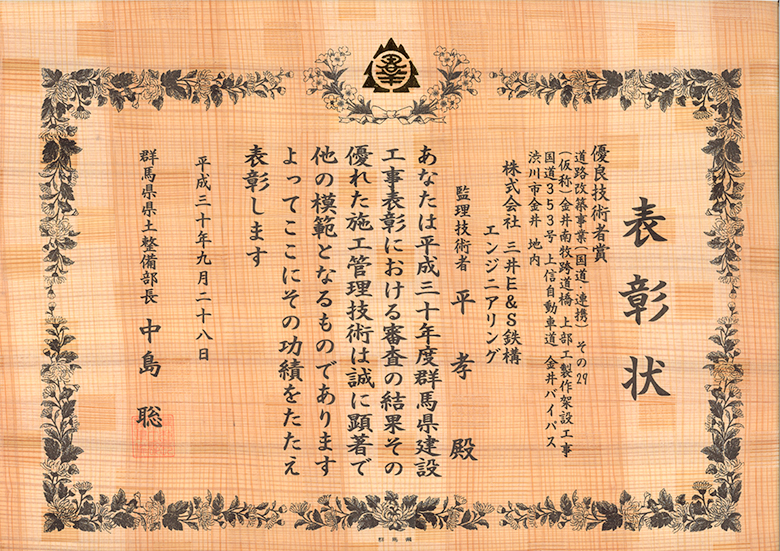 表彰状
優良技術者賞
道路改築事業(国道・連携)その29
(仮称)金井南牧跨道橋 上部工製作架設工事
国道353号 上信自動車道 金井バイパス
渋川市金井 地内
株式会社 三井E&S鉄構
エンジニアリング
監理技術者 平 孝 殿
あなたは平成三十年度群馬県建設
工事表彰における審査の結果その
優れた施工管理技術は誠に顕著で
他の模範となるものであります
よってここにその功績をたたえ
表彰します
平成三十年九月二十八日
群馬県県土整備部長 中島 聡